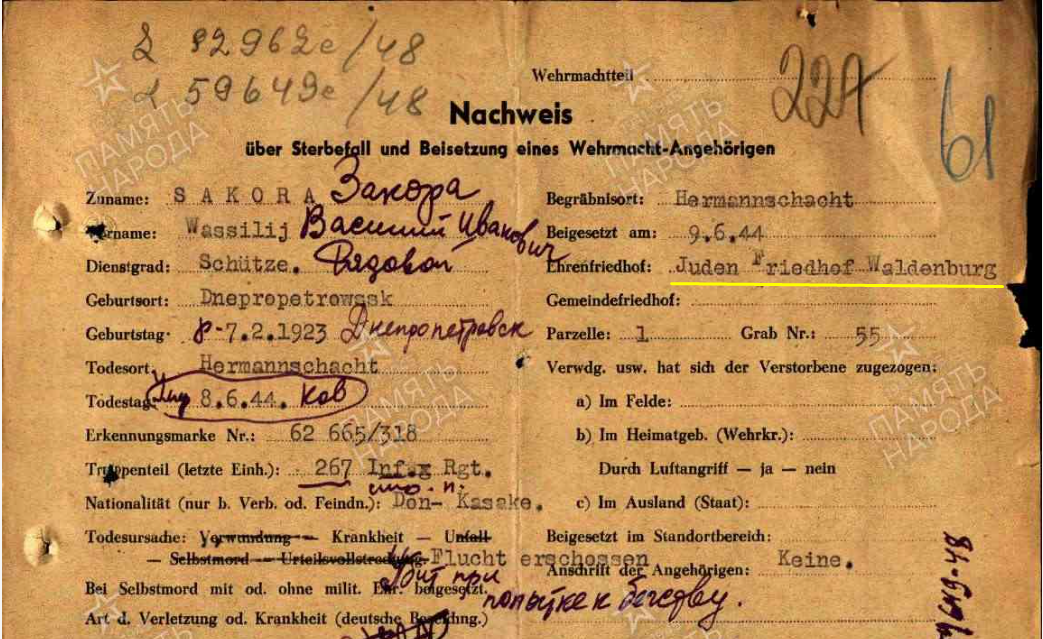 2 82962с/48
2 59649с/48
Wehrmachtteil
227
61
Nachweis
über Sterbefall und Beisetzung eines Wehrmacht-Angehörigen
Zuname: SAKORA Закора
Vorname: Wassilij Василий Иванович
Dienstgrad: Schütze. Рядовой
Geburtsort: Dnepropetrowssk
Geburtstag: 7.2.1923 Днепропетровск
Todesort: Hermannschacht
Todestag: 8.6.44.
Erkennungsmarke Nr.: 62 665/318
Truppenteil (letzte Einh.): 267 Inf.x Rgt.
Nationalität (nur b. Verb. od. Feindn.): Don- Kasake.
Todesursache: Verwundung — Krankheit — Unfall
— Selbstmord — Urteilsvollstreckung. Flucht erschossen
Убит при
попытке к бегству.
Bei Selbstmord mit od. ohne milit. Ehr. beigesetzt.
Art d. Verletzung od. Krankheit (deutsche Bezeichng.)
Begräbnisort: Hermannschacht
Beigesetzt am: 9.6.44
Ehrenfriedhof: Juden Friedhof Waldenburg
Gemeindefriedhof:
Parzelle: 1 Grab Nr.: 55
Verwdg. usw. hat sich der Verstorbene zugezogen:
a) Im Felde:
b) Im Heimatgeb. (Wehrkr.):
Durch Luftangriff — ja — nein
c) Im Ausland (Staat):
Beigesetzt im Standortbereich:
Anschrift der Angehörigen: Keine.
ПАМЯТЬ
НАРОДА